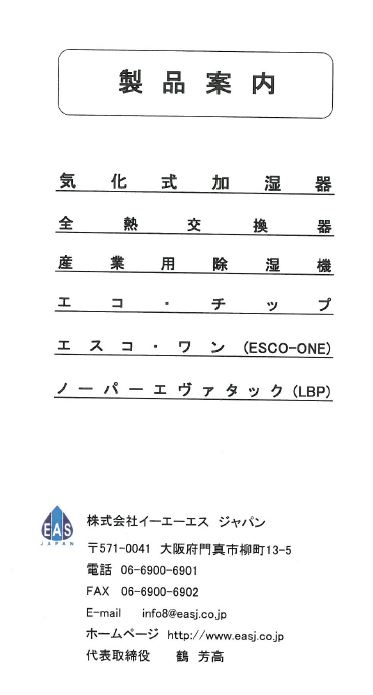 製品案内
気化式加湿器
全熱交換器
産業用除湿機
エコ・チップ
エスコ・ワン(ESCO-ONE)
ノーパーエヴァタック(LBP)
EAS
JAPAN
株式会社イーエーエス ジャパン
〒571-0041 大阪府門真市柳町13-5
電話 06-6900-6901
FAX 06-6900-6902
E-mail info8@easj.co.jp
ホームページ http://www.easj.co.jp
代表取締役 鶴 芳高